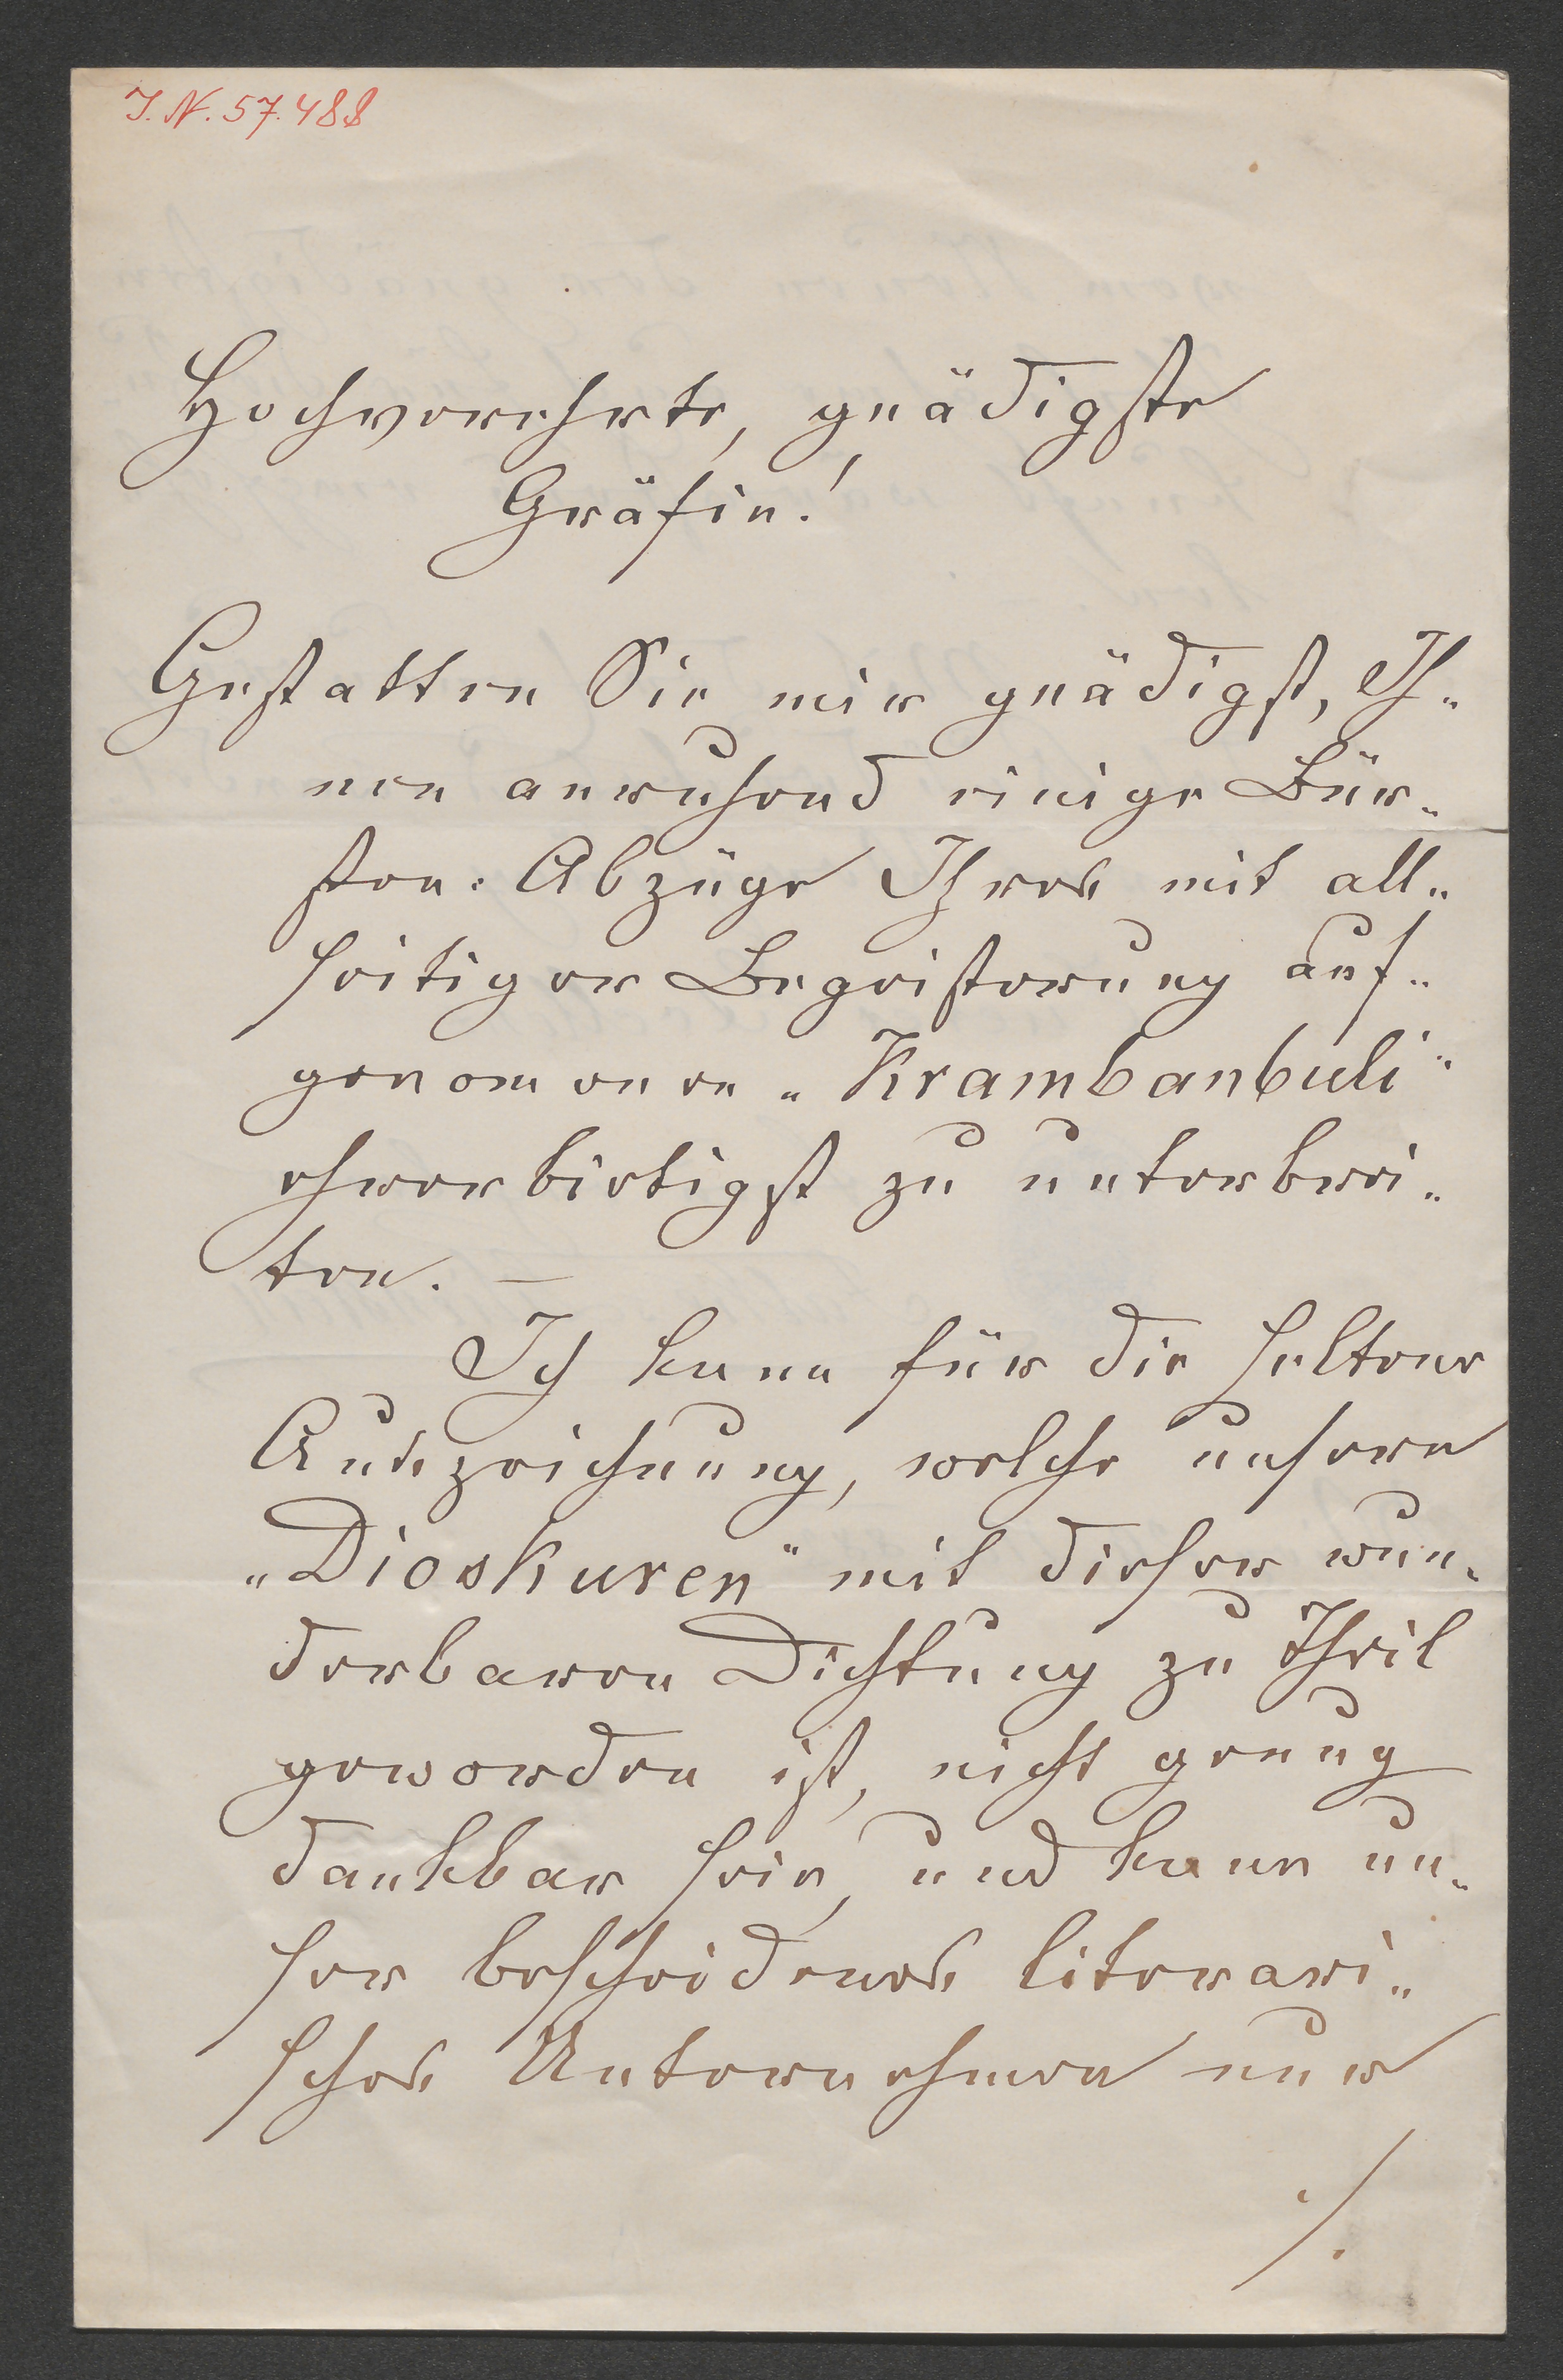 I.N. 57.488
Hochverehrte, gnädigste
Gräfin!
Gestatten Sie mir gnädigst, Ih„
nen anruhend einige Bür„
sten-Abzüge Ihres mit all„
seitiger Begeisterung auf„
genommenen „Krambanbuli"
ehrerbietigst zu unterbrei„
ten. —
Ich kann für die seltene
Auszeichnung, welche unseren
„Dioskuren" mit dieser wun„
derbaren Dichtung zu Theil
geworden ist, nicht genug
dankbar sein, und kann un„
ser bescheidenes literari„
sches Unternehmen nur
./.